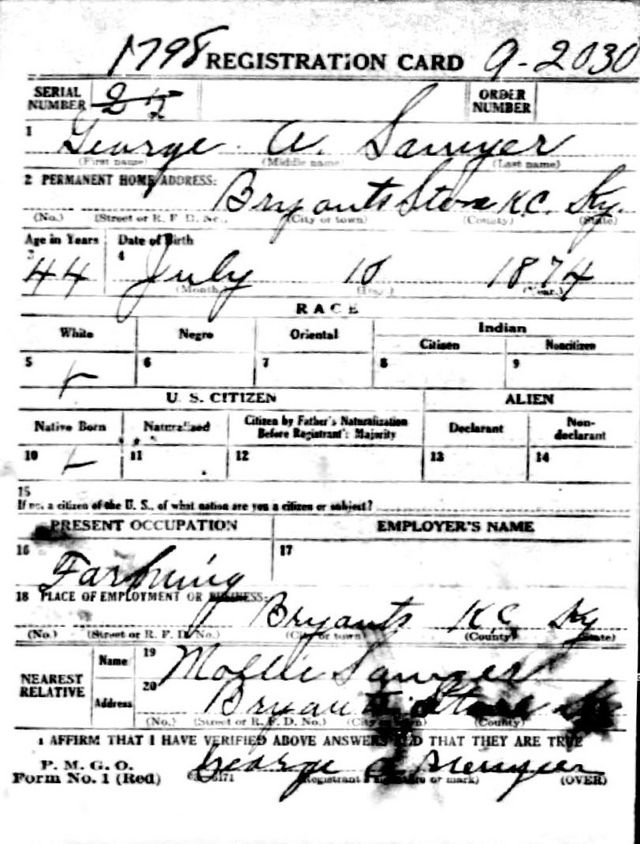 1798 REGISTRATION CARD 9-2030
SERIAL NUMBER ORDER NUMBER
1 George A. Sawyer
(First name) (Middle name) (Last name)
2 PERMANENT HOME ADDRESS:
Bryants Store K.C. Ky.
(No.) (Street or R. F. D. No.) (City or town) (County) (State)
Age in Years Date of Birth
3 4
44 July 10 1874
(Month.) (Day.) (Year.)
RACE
White Negro Oriental Indian
Citizen Noncitizen
5 6 7 8 9
U. S. CITIZEN ALIEN
Native Born Naturalized Citizen by Father's Naturalization Before Registrant's Majority Declarant Non-declarant
10 11 12 13 14
15
If not a citizen of the U. S., of what nation are you a citizen or subject?
PRESENT OCCUPATION EMPLOYER'S NAME
16 17
Farming
18 PLACE OF EMPLOYMENT OR BUSINESS:
Bryants KC Ky
(No.) (Street or R. F. D. No.) (City or town) (County) (State)
NEAREST RELATIVE
Name 19 Mollie Sawyer
Address 20 Bryants Store Ky
(No.) (Street or R. F. D. No.) (City or town) (County)
I AFFIRM THAT I HAVE VERIFIED ABOVE ANSWERS AND THAT THEY ARE TRUE
P. M. G. O.
Form No. 1 (Red) George A
(Registrant's signature or mark) (OVER)